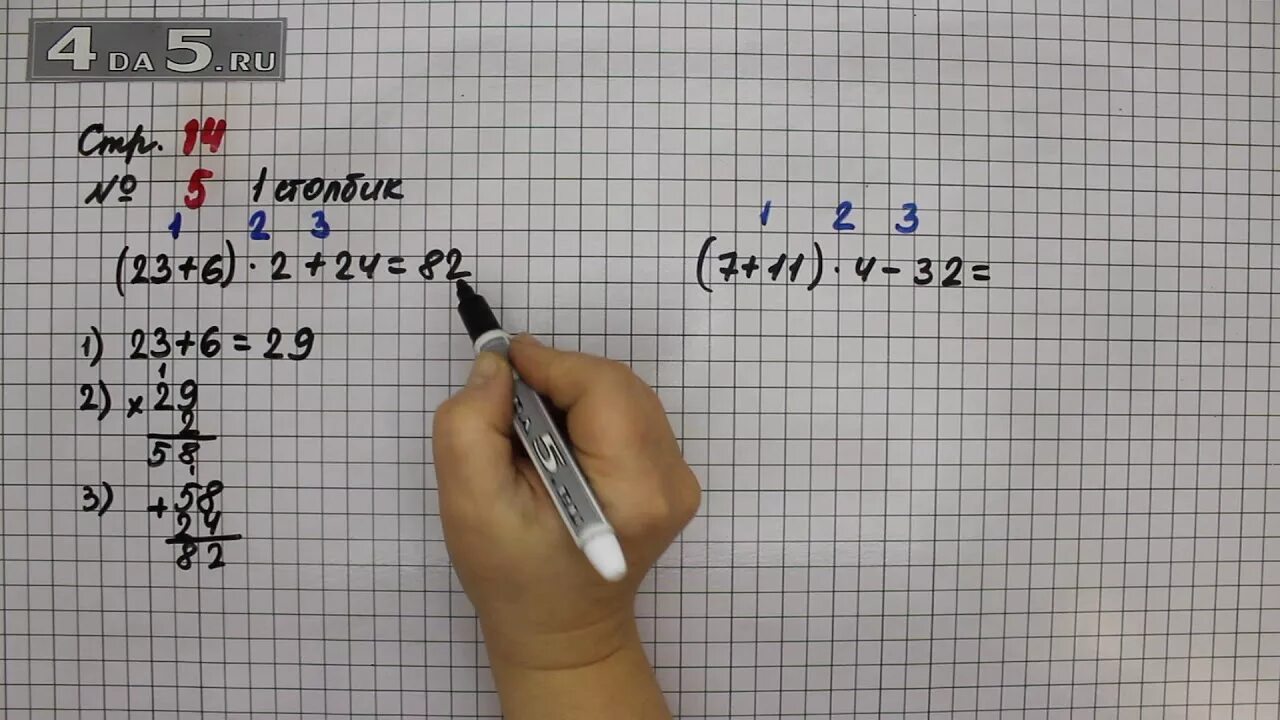 4 DA 5.RU
Стр. 14
№ 5 1 столбик
1 2 3
(23+6)·2+24=82
1) 23+6=29
1
2) × 29
2
58
1
3) + 58
24
82
1 2 3
(7+11)·4-32=
ДА 5